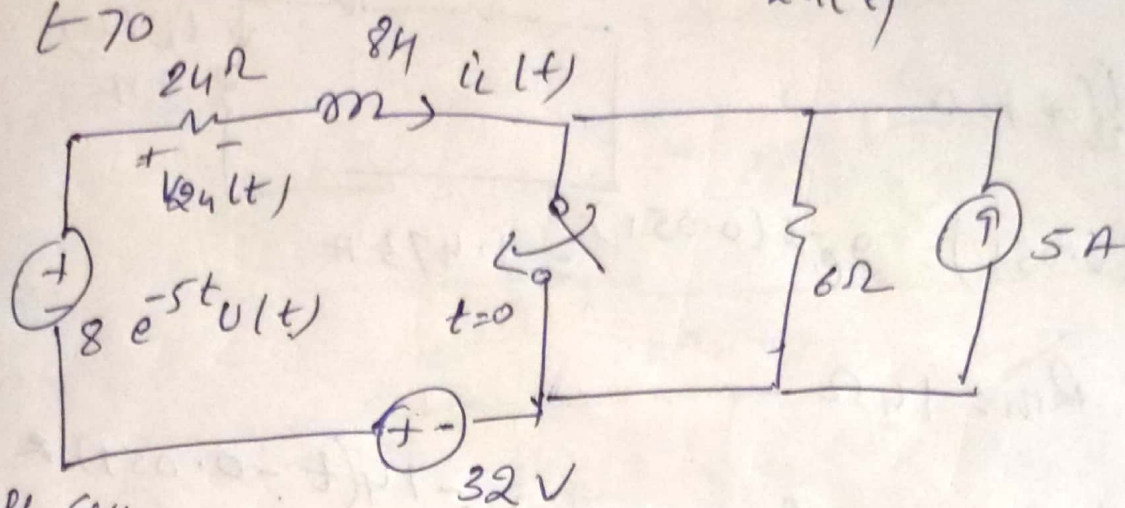 t>0
24Ω 8H iL(t)
+ V24(t) -
+
-
8 e^-5t u(t)
t=0
6Ω
5A
+ -
32 V